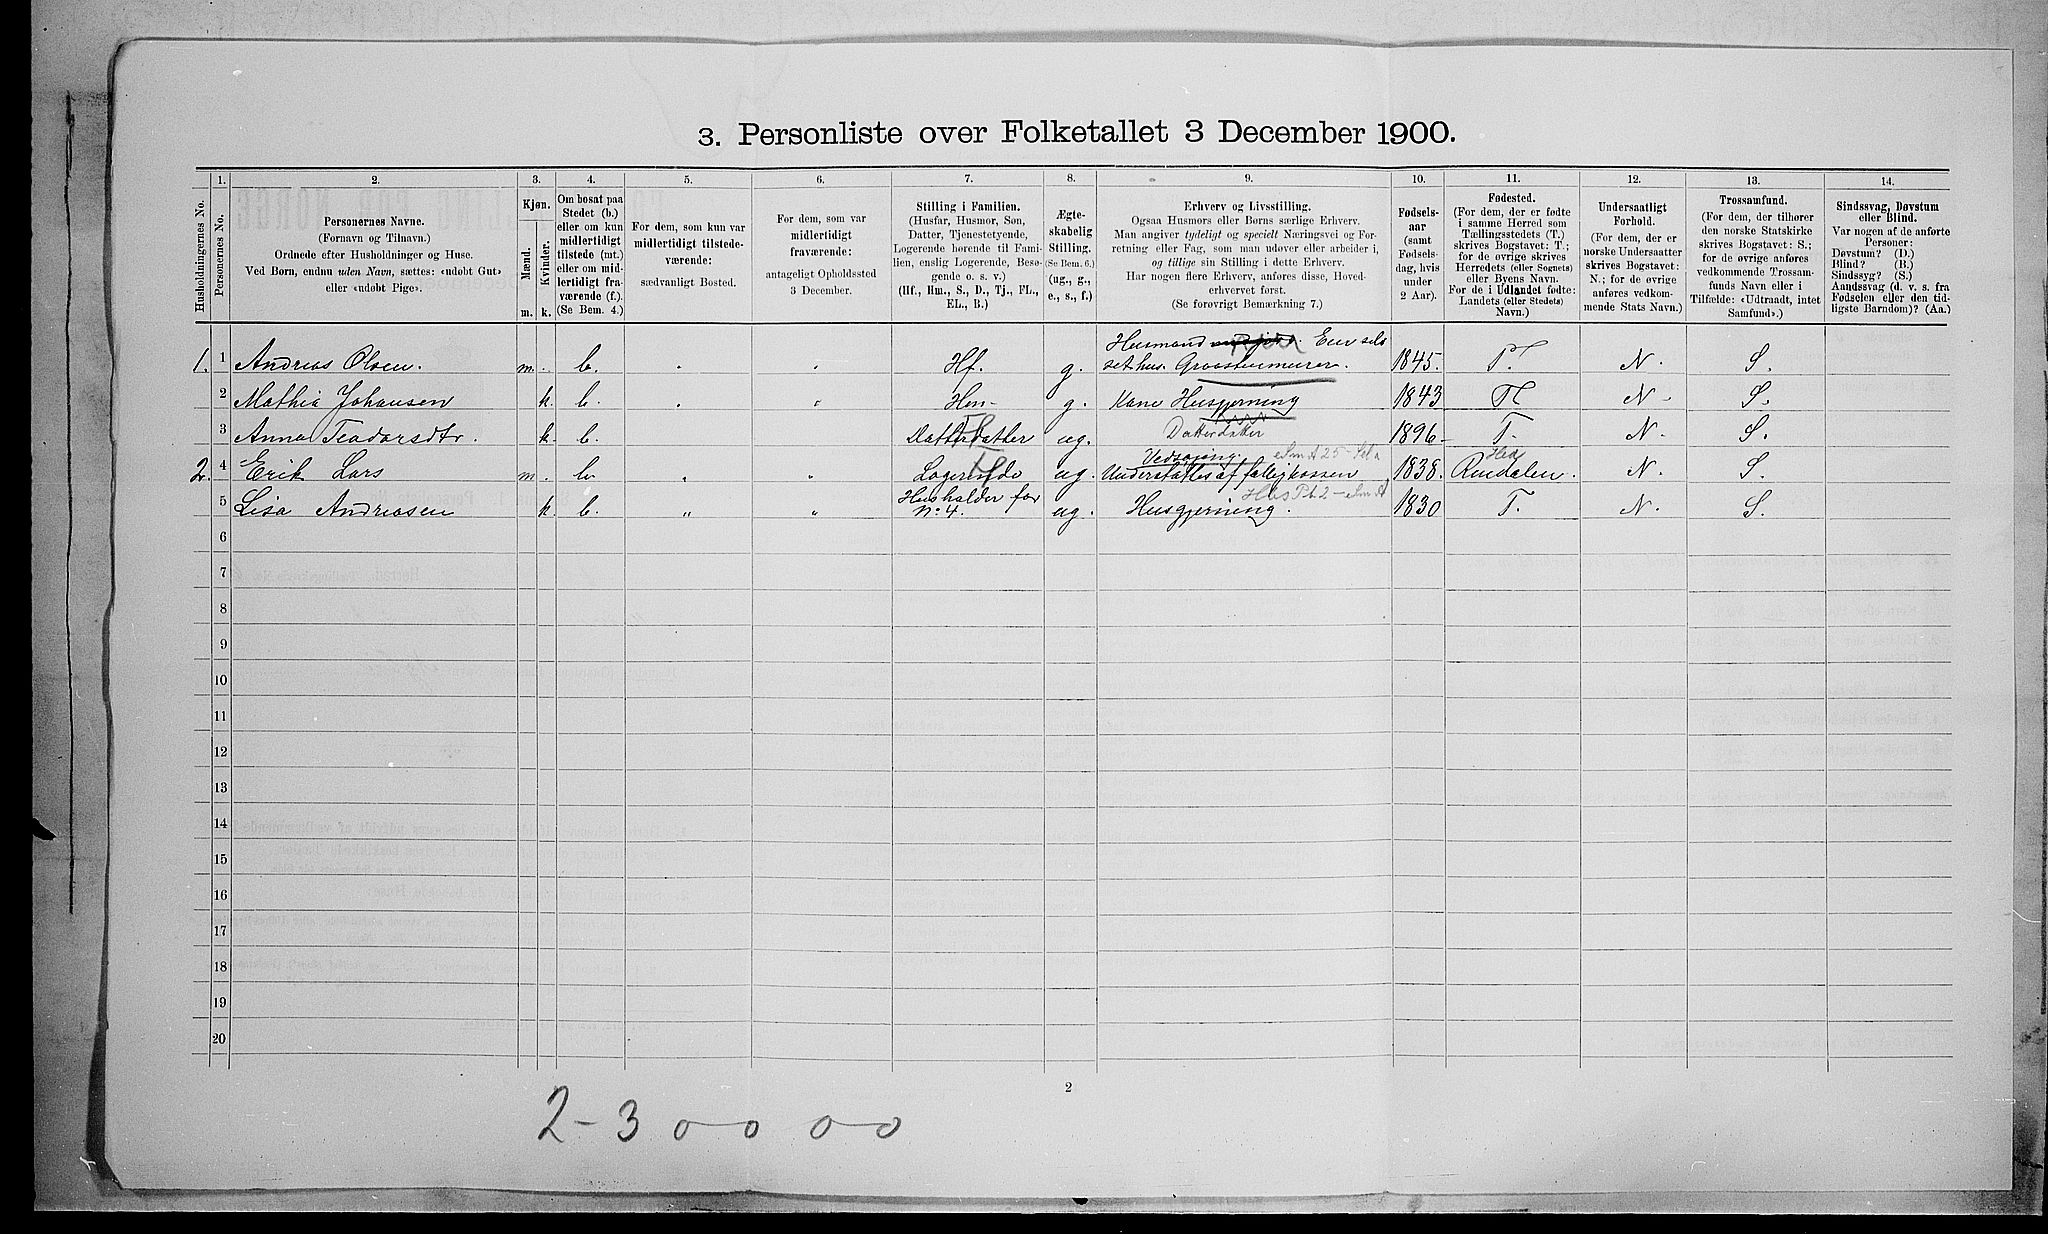 3. Personliste over Folketallet 3 December 1900.
Husholdningernes No.
1.
Personernes No.
2.
Personernes Navne.
(Fornavn og Tilnavn.)
Ordnede efter Husholdninger og Huse.
Ved Børn, endnu uden Navn, sættes: «udøbt Gut»
eller «udøbt Pige».
3.
Kjøn.
Mænd.
Kvinder.
m. k.
4.
Om bosat paa
Stedet (b.)
eller om kun
midlertidigt
tilstede (mt.)
eller om mid-
lertidigt fra-
værende (f.).
(Se Bem. 4.)
5.
For dem, som kun var
midlertidigt tilstede-
værende:
sædvanligt Bosted.
6.
For dem, som var
midlertidigt
fraværende:
antageligt Opholdssted
3 December.
7.
Stilling i Familien.
(Husfar, Husmor, Søn,
Datter, Tjenestetyende,
Logerende hørende til Fami-
lien, enslig Logerende, Besø-
gende o. s. v.)
(Hf., Hm., S., D., Tj., FL.,
EL., B.)
8.
Ægte-
skabelig
Stilling.
(Se Bem. 6.)
(ug., g.,
e., s., f.)
9.
Erhverv og Livsstilling.
Ogsaa Husmors eller Børns særlige Erhverv.
Man angiver tydeligt og specielt Næringsvei og For-
retning eller Fag, som man udøver eller arbeider i,
og tillige sin Stilling i dette Erhverv.
Har nogen flere Erhverv, anføres disse, Hoved-
erhvervet først.
(Se forøvrigt Bemærkning 7.)
10.
Fødsels-
aar
(samt
Fødsels-
dag, hvis
under
2 Aar).
11.
Fødested.
(For dem, der er fødte
i samme Herred som
Tællingsstedets (T.)
skrives Bogstavet: T.;
for de øvrige skrives
Herredets (eller Sognets)
eller Byens Navn.
For de i Udlandet fødte:
Landets (eller Stedets)
Navn.)
12.
Undersaatligt
Forhold.
(For dem, der er
norske Undersaatter
skrives Bogstavet:
N.; for de øvrige
anføres vedkom-
mende Stats Navn.)
13.
Trossamfund.
(For dem, der tilhører
den norske Statskirke
skrives Bogstavet: S.;
for de øvrige anføres
vedkommende Trossam-
funds Navn eller i
Tilfælde: «Udtraadt, intet
Samfund».)
14.
Sindssvag, Døvstum
eller Blind.
Var nogen af de anførte
Personer:
Døvstum? (D.)
Blind? (B.)
Sindssyg? (S.)
Aandssvag (d. v. s. fra
Fødselen eller den tid-
ligste Barndom)? (Aa.)
1. 1 Andreas Olsen. m. b. Hf. g. Husmand Eier selv set hus. Graastenmurer. 1845. T. N. S.
2 Mathia Johansen k. b. Hm- g. Kone Husgjerning 1843 T N- S.
3 Anna Teodorsdtr. k. b. Datterdatter ug. Datterdatter 1896- T. N. S.
2. 4 Erik Lars m. b. Logerende ug. Vedsaging. Understøttes af fattigkassen 1838. Rindalen. N. S.
5 Lisa Andreasen k. b. " " Husholder for No 4. ug. Husgjerning. 1830 T. N. S.
6
7
8
9
10
11
12
13
14
15
16
17
18
19
20
2
2-3 0-0 0-0